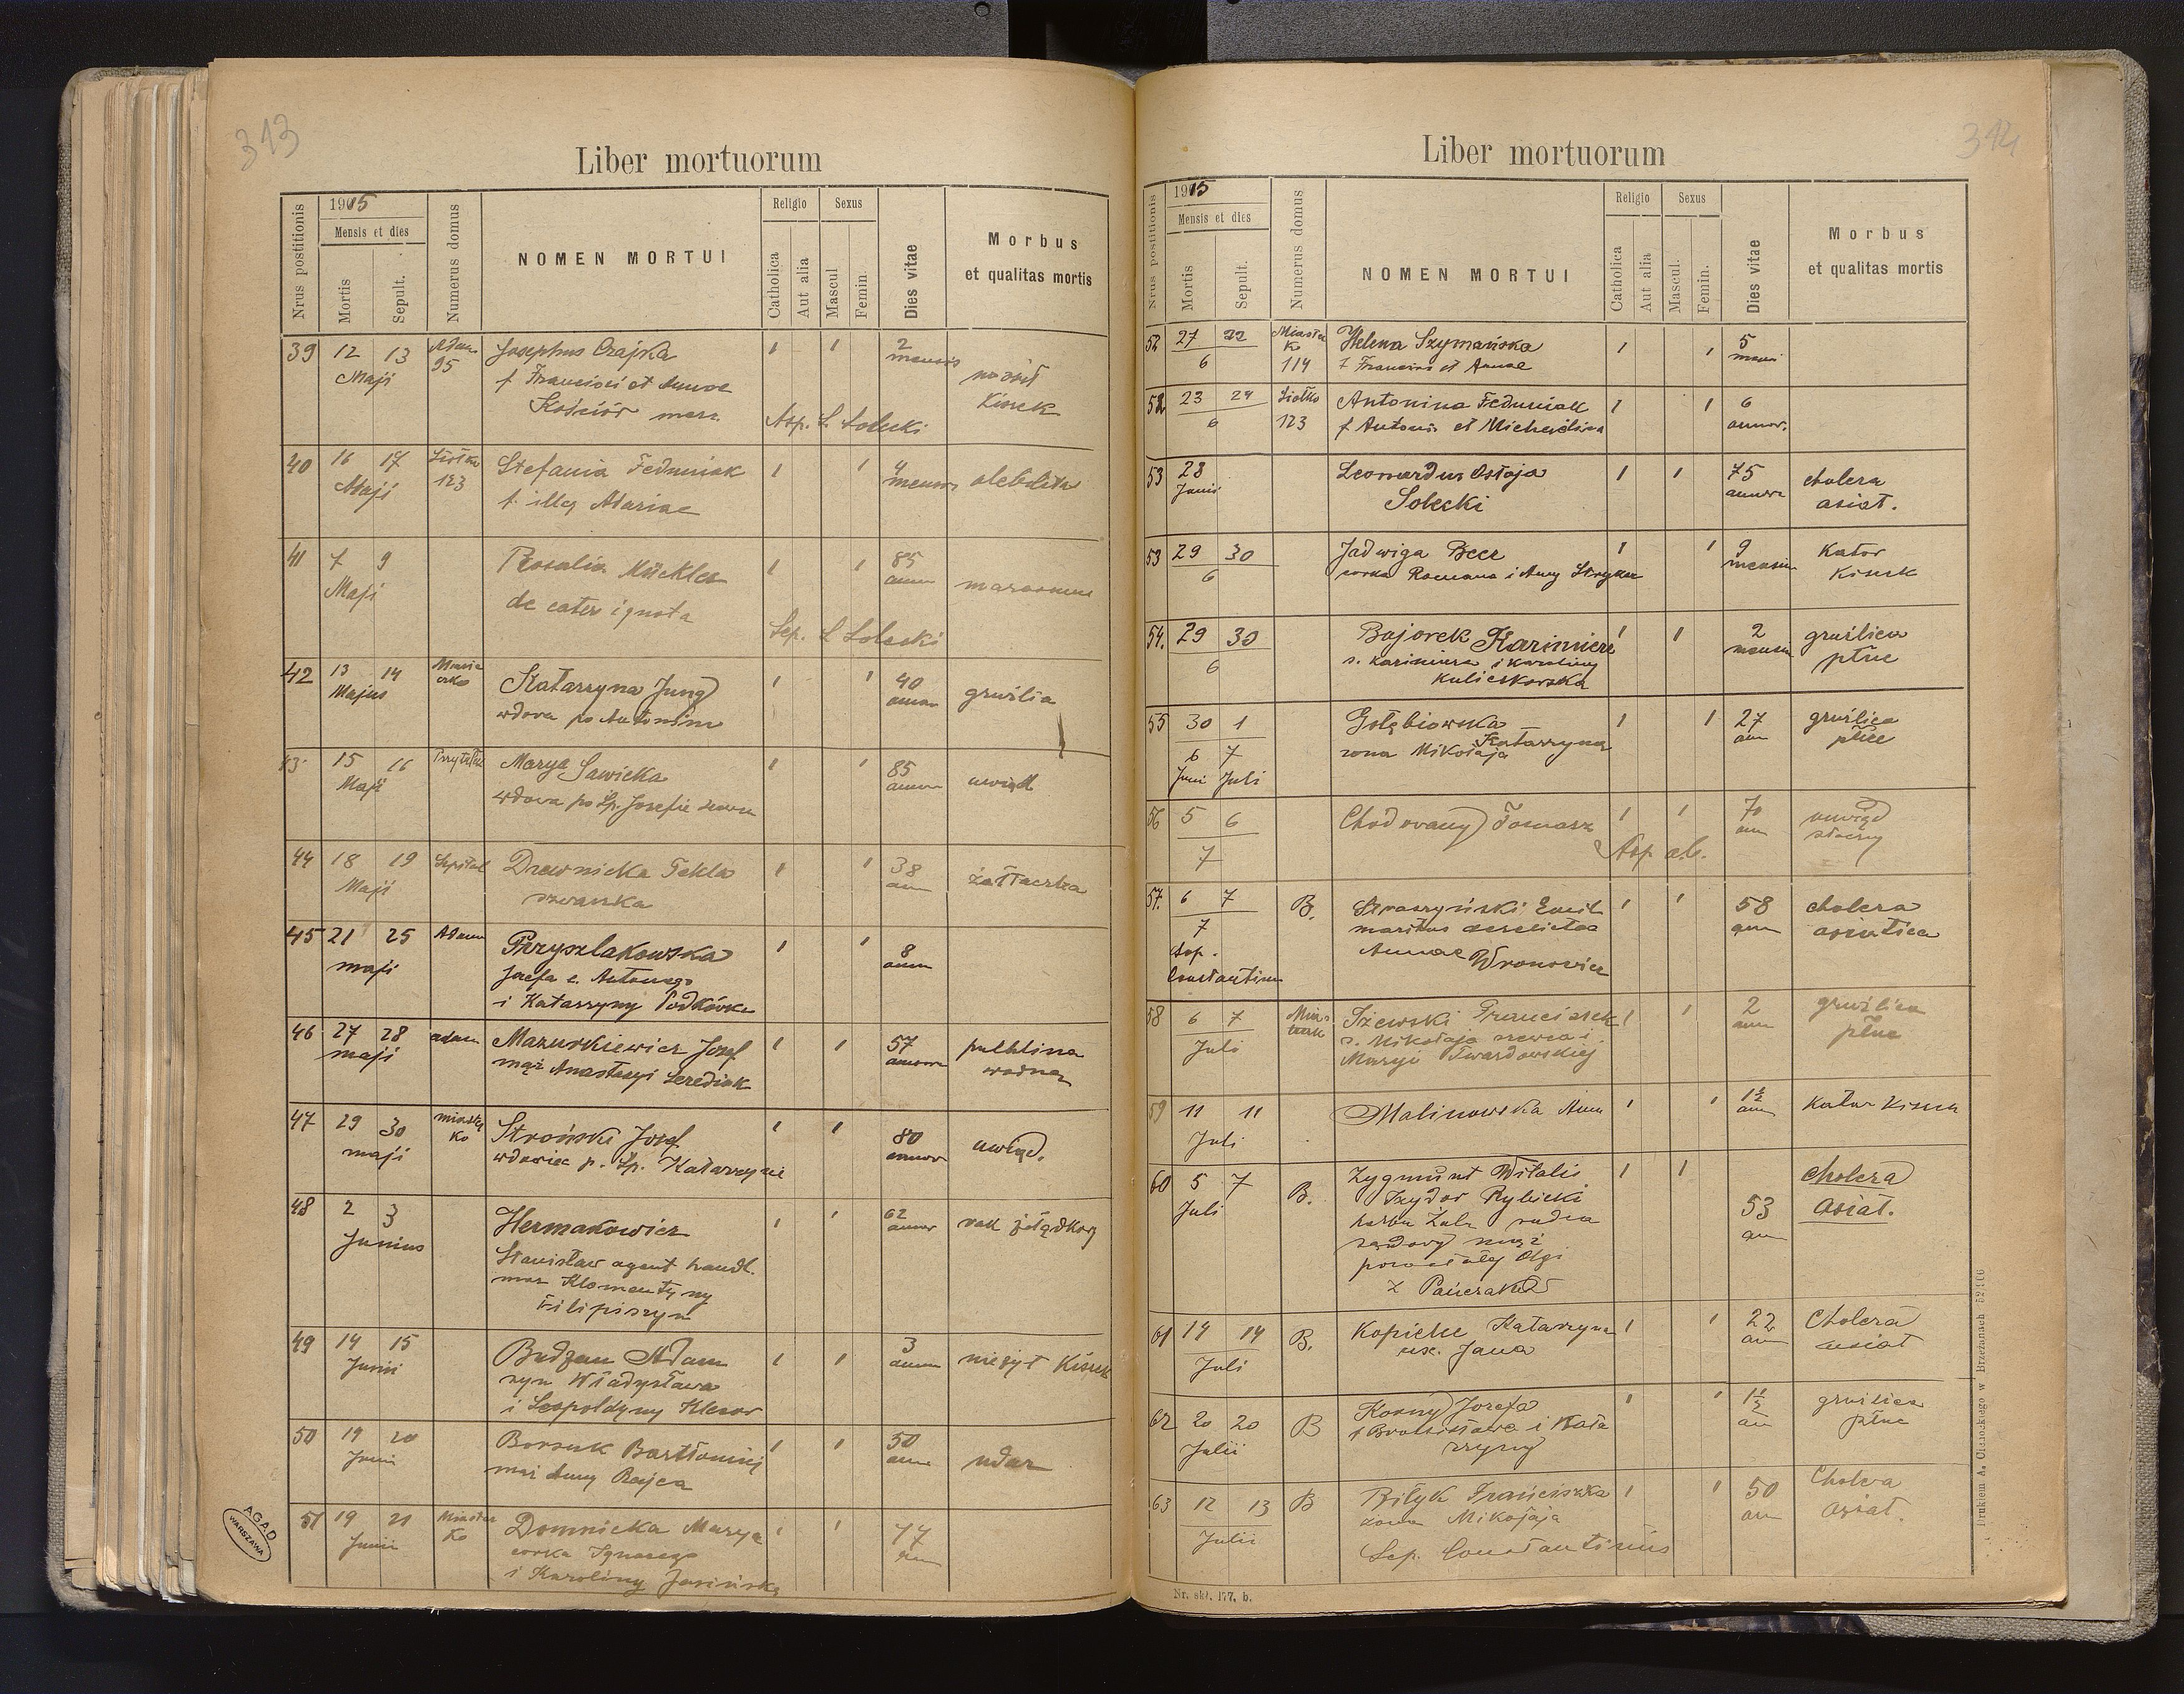 313
Liber mortuorum
Nrus postitionis
1915
Mensis et dies
Mortis
Sepult.
Numerus domus
NOMEN MORTUI
Religio
Catholica
Aut alia
Sexus
Mascul
Femin.
Dies vitae
Morbus
et qualitas mortis
39 12 13 Adam Josephus Czajka 1 1 2
Maji 95 f Francisci et Annae mensis
Kościów Asp. L. Solecki kiszek
40 16 17 Siołko Stefania Feduniak 1 1 4
Maji 123 f. illeg Mariae mensis
41 7 9 Rosalia Mückler 1 1 85
Maji de ceters ignota annor
Sep. L Solecki
42 13 14 Katarzyna Jung 1 1 40 gruźlia
Majus wdowa po Antonim annor
43 15 16 Marya Sawicka 1 1 85 uwiąd
Maji wdowa po Śp. Josefie annor
44 18 19 Szpital Drewnicka Tekla 1 1 38 żółtaczka
Maji szwaczka ann
45 21 25 Adam Przyszlakowska 1 1 8
maji Józefa c. Antonego ann
i Katarzyny Podkówka
46 27 28 adam Mazurkiewicz Józef 1 1 57 puchlina
maji mąż Anastazyi Seredink annor wodna
47 29 30 miastecz Stroński Józef 1 1 80 uwiąd.
maji ko wdowiec p. Śp. Katarzynie annor
48 2 3 Hermakowicz 1 1 62 rak żołądkowy
Junius Stanisław agent handl. annor
mąż Klementyny
Filipiszyn
49 14 15 Budzan Adam 1 1 3 nieżyt kiszek
Junii syn Władysława annor
i Leopoldyny Klezor
50 19 20 Borsuk Bartłomiej 1 1 50 udar
Junii mąż Anny Rajca ann
51 19 21 Miastecz Domnicka Marya 1 1 77
Junii ko corka Ignacego ann
i Karoliny Jasińska
AGAD
WARSZAWA
314
Liber mortuorum
Nrus postitionis
1915
Mensis et dies
Mortis
Sepult.
Numerus domus
NOMEN MORTUI
Religio
Catholica
Aut alia
Sexus
Mascul.
Femin.
Dies vitae
Morbus
et qualitas mortis
52 27 22 Miastecz Helena Szymańska 1 1 5
6 ko 114 f Francisci et Annae mensi
52 23 24 Siołko Antonina Feduniak 1 1 6
6 123 f Antoni et Michaelina annor.
53 28 Leonardus Ostoja 1 1 75 cholera
Junii Solecki annor asiat.
53 29 30 Jadwiga Beer 1 1 9 Katar
6 corka Romana i Anny mensium kiszek
54. 29 30 Bajorek Kazimierz 1 1 2 gruźlica
6 s. Kazimierza i Karoliny mensium płuc
Kulickowska
55 30 1 Gołębiowska 1 1 27 gruźlica
6 7 Katarzyna ann płuc
Juni Juli żona Mikołaja
56 5 6 Chodovany Tomasz 1 1 70 uwiąd
7 Asp ab. ann starczy
57. 6 7 B. Straszyński Emil 1 1 58 cholera
7 maritus derelictae ann asiatica
Sep. Annae Wronowicz
Constantinus
58 6 7 Mias Iżewski Franciszek 1 1 2 gruźlica
Juli teczk s. Mikołaja szewca i ann płuc
Maryi Twardowskiej
59 11 11 Malinowska Anna 1 1 1½ Katar kiszek
Juli ann
60 5 7 B. Zygmunt Witalis 1 1 Cholera
Juli Izydor Rybicki 53 asiat.
radca ann
sądowy mąż
pozostałej Olgi
z
61 14 14 B. Kopiche Katarzyna 1 1 22 Cholera
Juli ux. Jana ann asiat
62 20 20 B Korny Jozefa 1 1 1½ gruźlica
Julii f Bronisława i Kata ann płuc
rzyny
63 12 13 B Bilyk Franciszka 1 1 50 Cholera
Julii żona Mikołaja ann asiat.
Sep. Constantinus
Nr. skł. 177, b.
Drukiem A. Cisnockiego w Brzeżanach